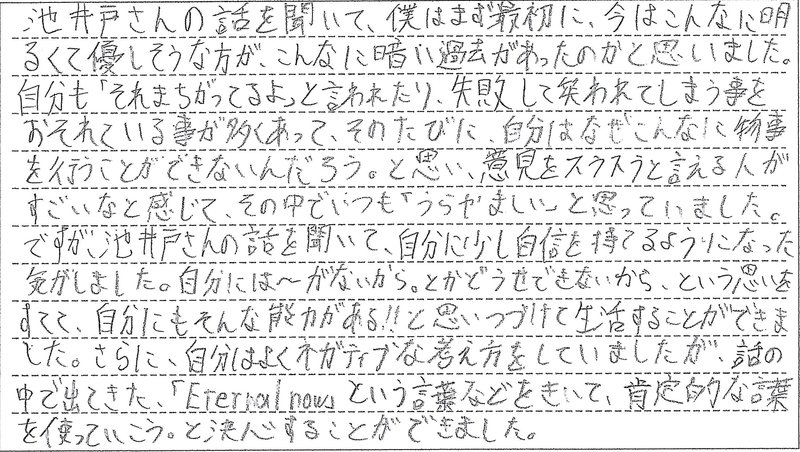 池井戸さんの話を聞いて、僕はまず最初に、今はこんなに明
るくて優しそうな方が、こんなに暗い過去があったのかと思いました。
自分も「それまちがってるよ」と言われたり、失敗して笑われてしまう事を
おそれている事が多くあって、そのたびに、自分はなぜこんなに物事
を行うことができないんだろう。と思い、意見をスラスラと言える人が
すごいなと感じて、その中でいつも「うらやましい」と思っていました。
ですが、池井戸さんの話を聞いて、自分に少し自信を持てるようになった
気がしました。自分には〜がないから。とかどうせできないから、という思いを
すてて、自分にもそんな能力がある!!と思いつづけて生活することができま
した。さらに、自分はよくネガティブな考え方をしていましたが、話の
中で出てきた、「Eternal now」という言葉などをきいて、肯定的な言葉
を使っていこう。と決心することができました。